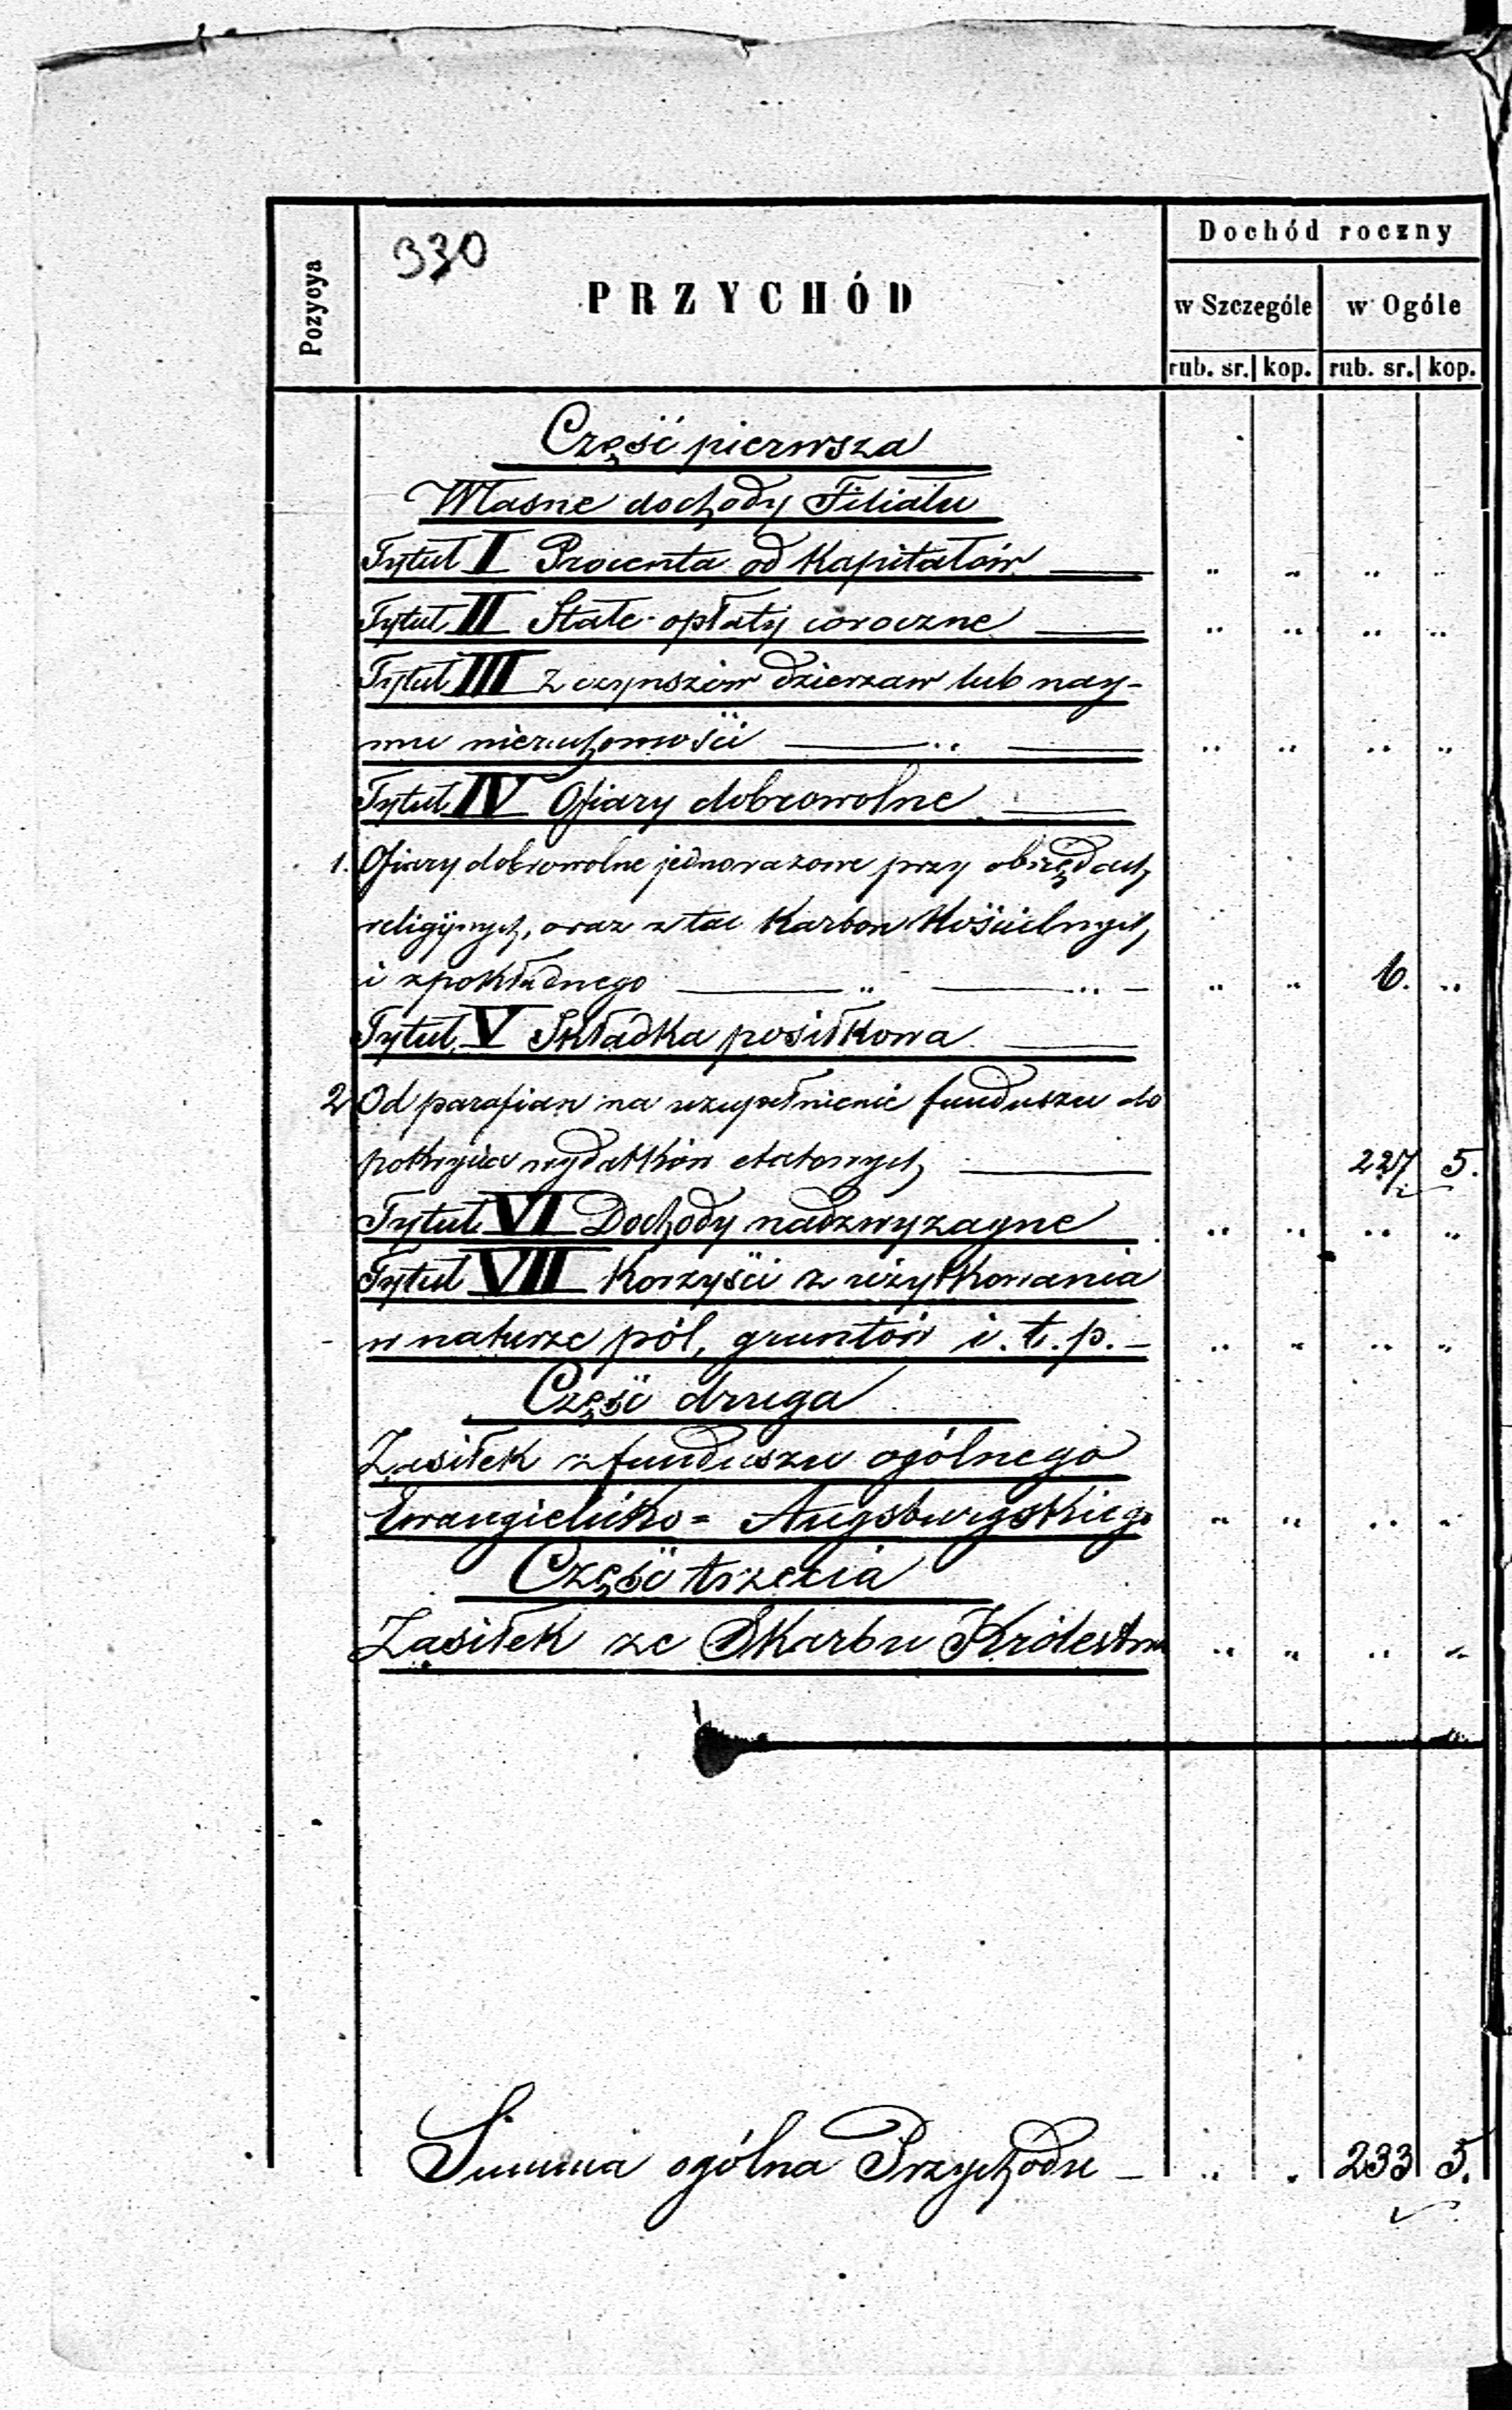 330
Pozycya
PRZYCHÓD
Dochód roczny
w Szczególe w Ogóle
rub. sr. kop. rub. sr. kop.
Część pierwsza
Własne dochody Filiału
Tytuł I Procenta od Kapitałów — „ „ „ „
Tytuł II Stałe opłaty coroczne — „ „ „ „
Tytuł III Z czynszów dzierzaw lub nay-
mu nieruchomości — „ — „ „ „ „
Tytuł IV Ofiary dobrowolne —
1. Ofiary dobrowolne jednorazowe przy obrzędach
religijnych, oraz z tac Karbon Kościelnych,
i z pokładnego — „ — „ — „ „ 6. „
Tytuł V Składka posiłkowa —
2 Od parafian na uzupełnienie funduszu do
pokrycia wydatków etatowych — 227 5.
Tytuł VI Dochody nadzwyzayne „ „ „ „
Tytuł VII Korzyści z użytkowania
w naturze pól, gruntów i. t. p. — „ „ „ „
Część druga
Zasiłek z funduszu ogólnego
Ewangielicko= Augsburgskiego „ „ „ „
Część trzecia
Zasiłek ze Skarbu Królestwa „ „ „ „
Summa ogólna Przychodu — „ „ 233 5.